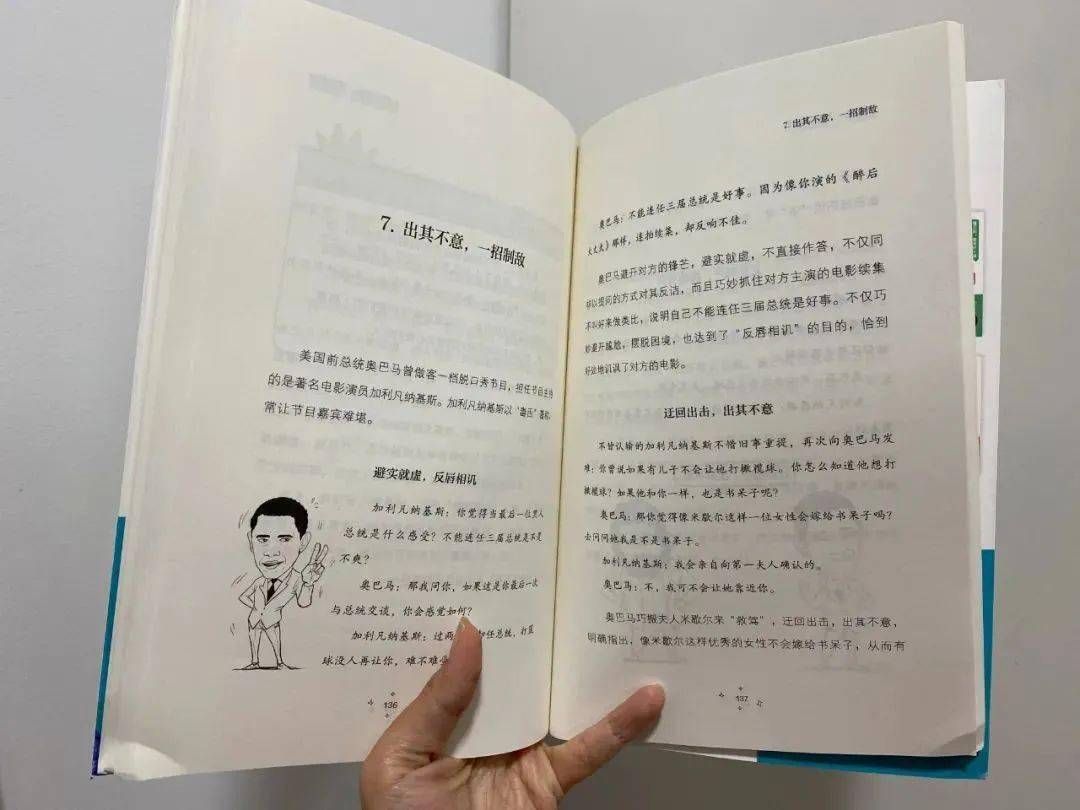 7. 出其不意，一招制敌
美国前总统奥巴马曾做客一档脱口秀节目，担任节目主持
的是著名电影演员加利凡纳基斯。加利凡纳基斯以“毒舌”著称
常让节目嘉宾难堪。
避实就虚，反唇相讥
加利凡纳基斯：你觉得当最后一位黑人
总统是什么感受？不能连任三届总统是不是
不爽？
奥巴马：那我问你，如果这是你最后一次
与总统交谈，你会感觉如何？
加利凡纳基斯：过两 卸任总统，打篮
球没人再让你，难不难
136
7. 出其不意，一招制敌
奥巴马：不能连任三届总统是好事。因为像你演的《醉后
大丈夫》那样，连拍续集，却反响不佳。
奥巴马避开对方的锋芒，避实就虚，不直接作答，不仅同
样以提问的方式对其反诘，而且巧妙抓住对方主演的电影续集
不叫好来做类比，说明自己不能连任三届总统是好事。不仅巧
妙避开尴尬，摆脱困境，也达到了“反唇相讥”的目的，恰到
好处地讥讽了对方的电影。
迂回出击，出其不意
不曾认输的加利凡纳基斯不惜旧事重提，再次向奥巴马发
难：你曾说如果有儿子不会让他打橄榄球。你怎么知道他想打
橄榄球？如果他和你一样，也是书呆子呢？
奥巴马：那你觉得像米歇尔这样一位女性会嫁给书呆子吗？
去问问她我是不是书呆子。
加利凡纳基斯：我会亲自向第一夫人确认的。
奥巴马：不，我可不会让她靠近你。
奥巴马巧搬夫人米歇尔来“救驾”，迂回出击，出其不意，
明确指出，像米歇尔这样优秀的女性不会嫁给书呆子，从而有
137